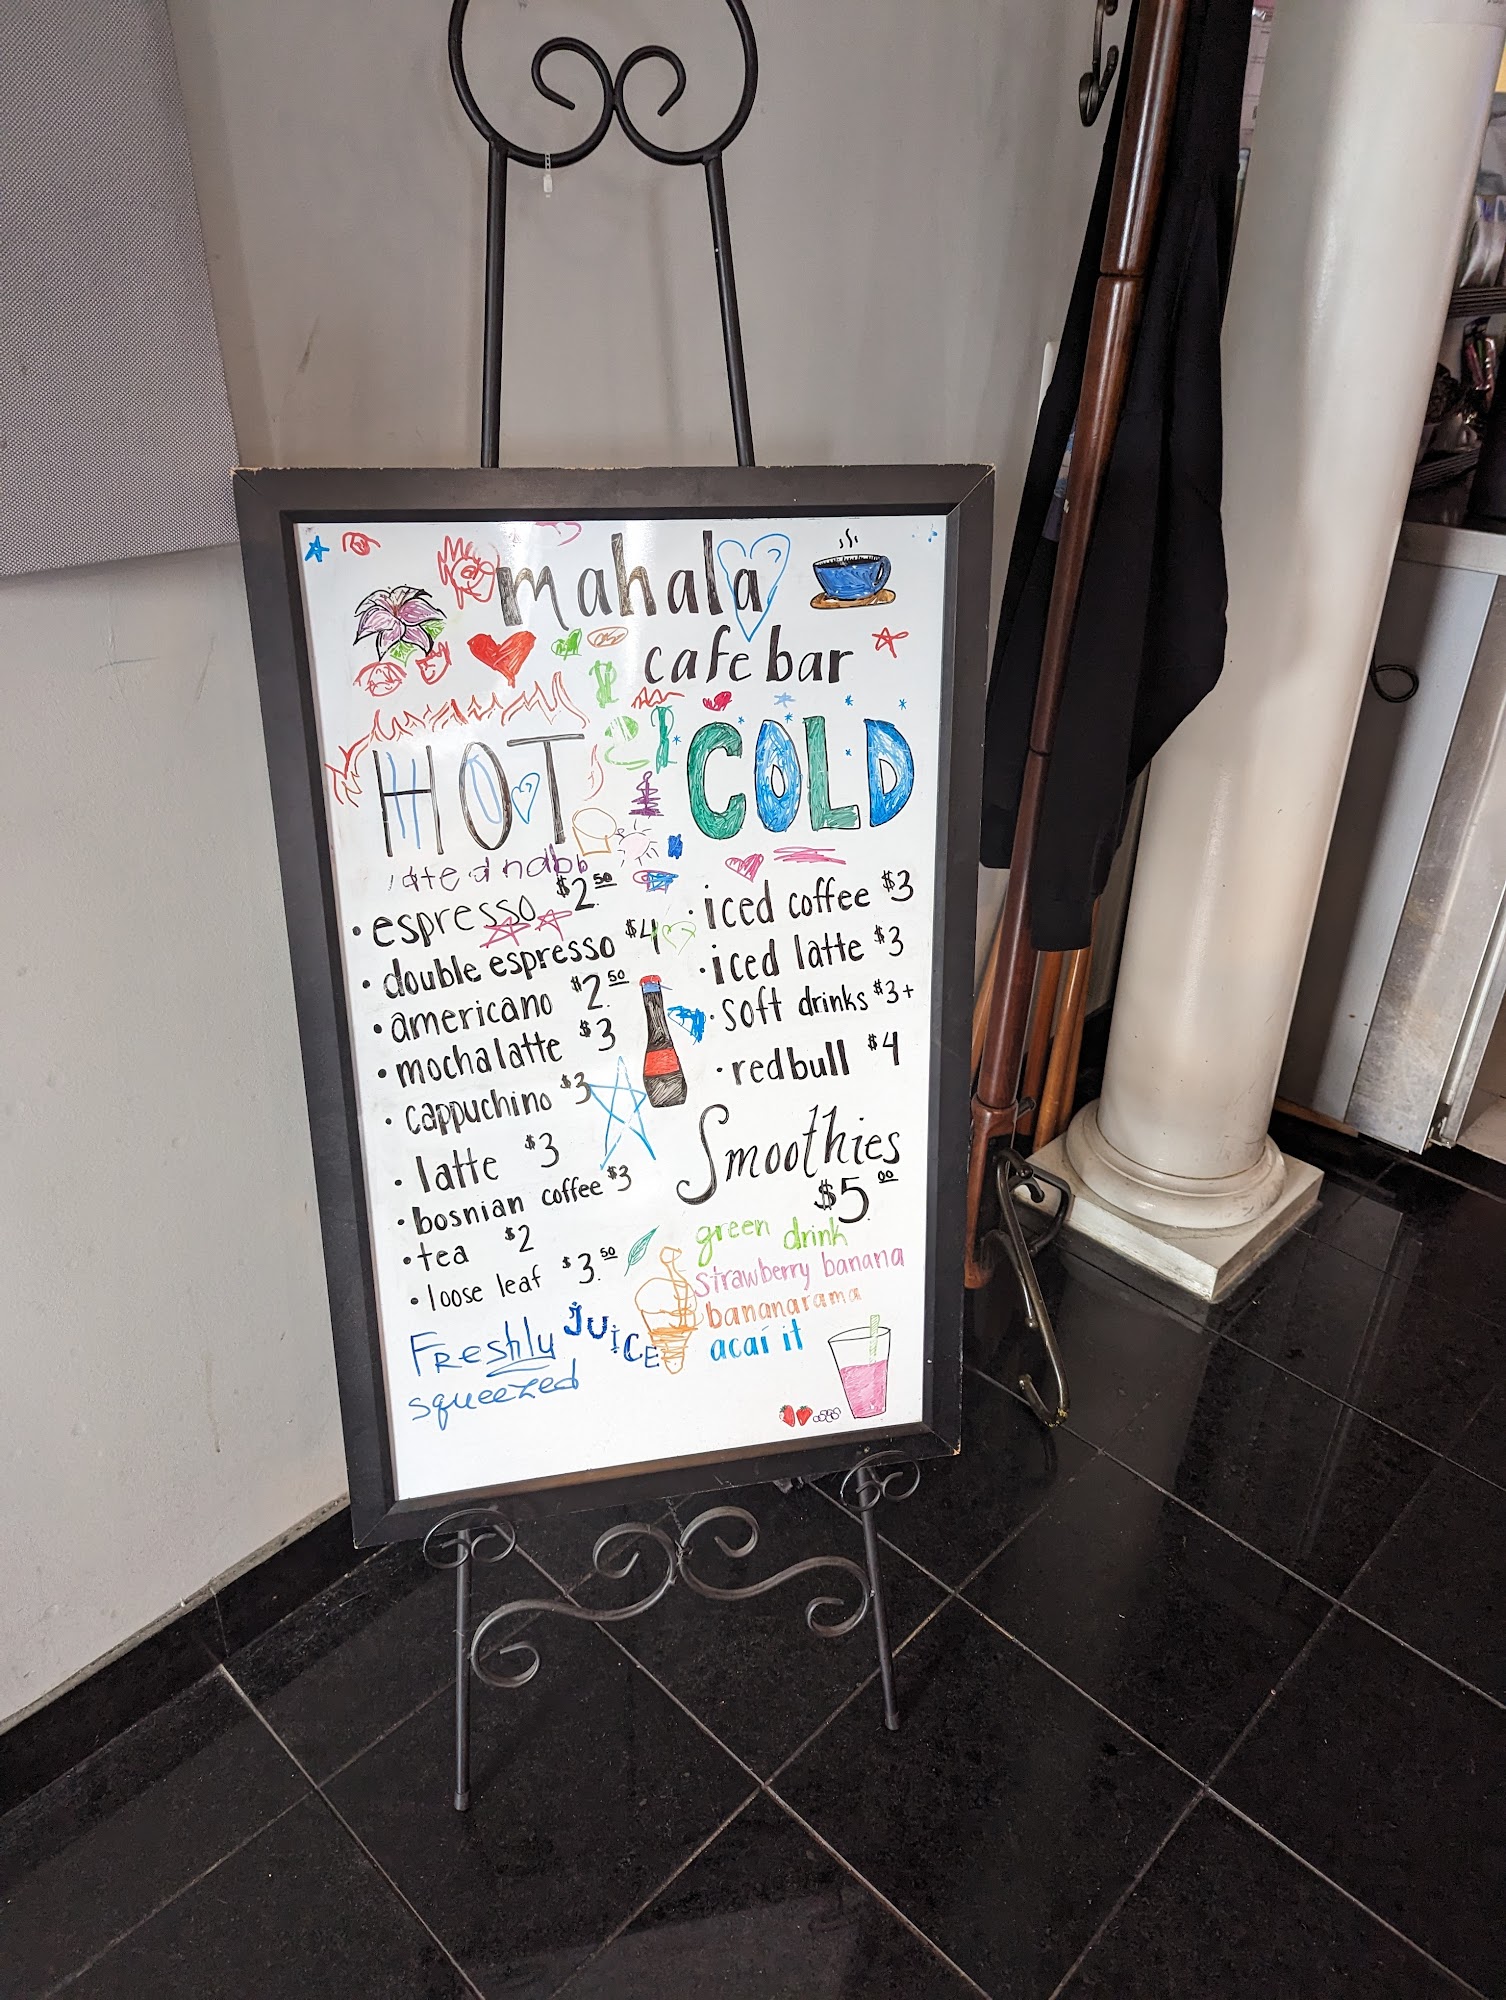 mahala
cafe bar
HOT
espresso $2.50
double espresso $4
americano $2.50
mocha latte $3
cappuchino $3
latte $3
bosnian coffee $3
tea $2
loose leaf $3.50
Freshly juice
squeezed
COLD
iced coffee $3
iced latte $3
soft drinks $3+
redbull $4
Smoothies
$5.00
green drink
strawberry banana
bananarama
acaí it